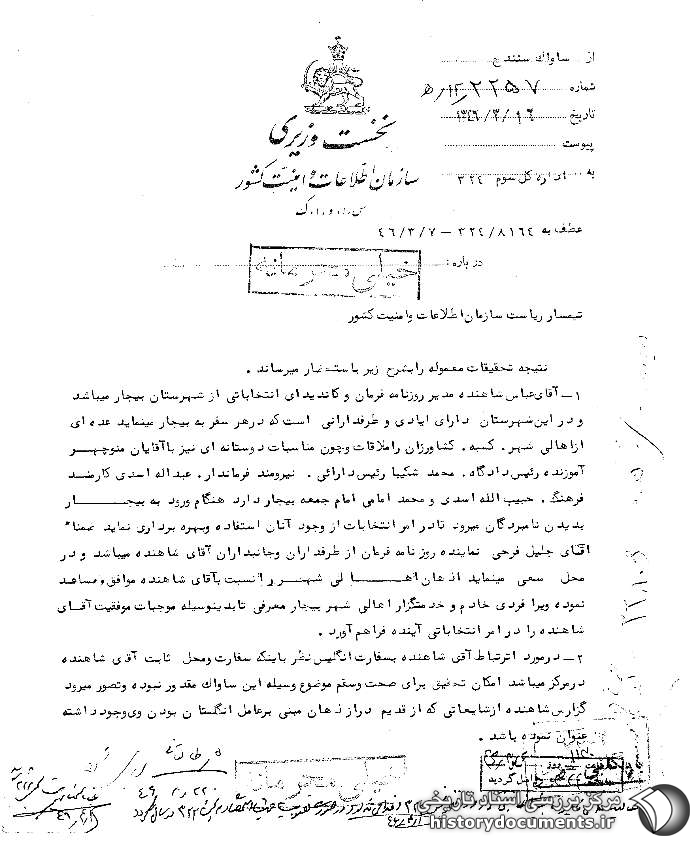 از ساواك سنندج
شماره ۲۲۵۷/۱۲ ه
تاریخ ۱۳۴۶/۳/۱۶
پیوست
به اداره كل سوم ۳۲۴
نخست وزیری
سازمان اطلاعات و امنیت كشور
س.ا.و.ا.ك
عطف به ۳۲۴/۸۱۶۴ – ۴۶/۳/۷
درباره :
خیلی محرمانه
تیمسار ریاست سازمان اطلاعات وامنیت كشور
نتیجه تحقیقات معموله رابشرح زیر باستحضار میرساند .
۱ــ آقای عباس شاهنده مدیر روزنامه فرمان و كاندیدای انتخاباتی از شهرستان بیجار میباشد
و در این شهرستان دارای ایادی و طرفدارانی است كه در هر سفر به بیجار مینماید عده ای
ازاهالی شهر . كسبه . كشاورزان راملاقات وچون مناسبات دوستانه ای نیز باآقایان منوچهر
آموزنده رئیس دادگاه . محمد شكیبا رئیس دارائی . نیرومند فرماندار . عبداله اسدی كارمند
فرهنگ . حبیب الله اسدی و محمد امامی امام جمعه بیجار دارد هنگام ورود به بیجــار
بدیدن نامبردگان میرود تادر امر انتخابات از وجود آنان استفاده وبهره برداری نماید ضمنا"
آقای جلیل فرحی نماینده روزنامه فرمان از طرفداران وجانبداران آقای شاهنده میباشد و در
محل سعی مینماید اذهان اهــالی شهــر را نسبت بآقای شاهنده موافق و مساعد
نموده ویرا فردی خادم و خدمتگزار اهالی شهر بیجار معرفی تابدینوسیله موجبات موفقیت آقای
شاهنده را در امر انتخاباتی آینده فراهم آورد .
۲ــ درمورد ارتباط آقی شاهنده بسفارت انگلیس نظر باینكه سفارت ومحل ثابت آقای شاهنده
درمركز میباشد امكان تحقیق برای صحت وسقم موضوع وسیله این ساواك مقدور نبوده وتصور میرود
گزارش شاهنده ازشایعاتی كه از قدیم درازذهان مبنی برعامل انگلستان بودن وی وجود داشته
عنوان نموده باشد .
خیلی محرمانه
مرکز بررسی اسناد تاریخی
historydocuments.ir